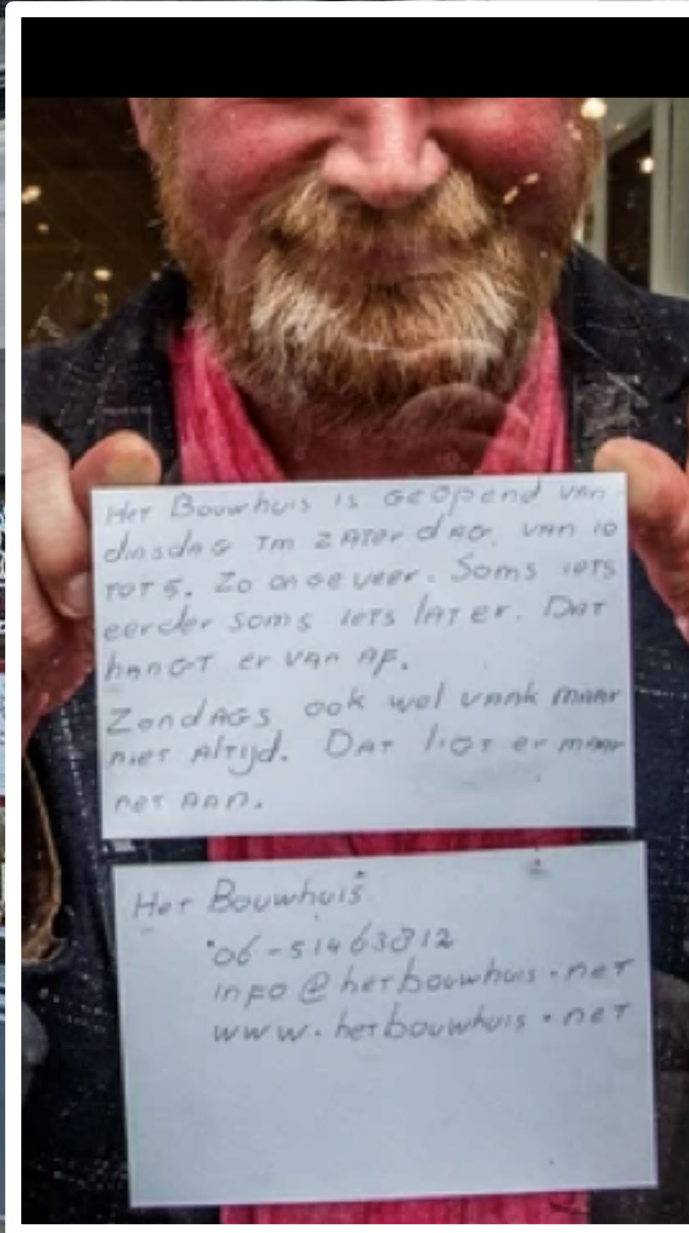 Het Bouwhuis is geopend van
dinsdag tm zaterdag, van 10
tot 5. Zo ongeveer. Soms iets
eerder soms iets later. Dat
hangt er van af.
Zondags ook wel vaak maar
niet altijd. Dat ligt er maar
net aan.
Het Bouwhuis
06-51463812
info@hetbouwhuis.net
www.hetbouwhuis.net